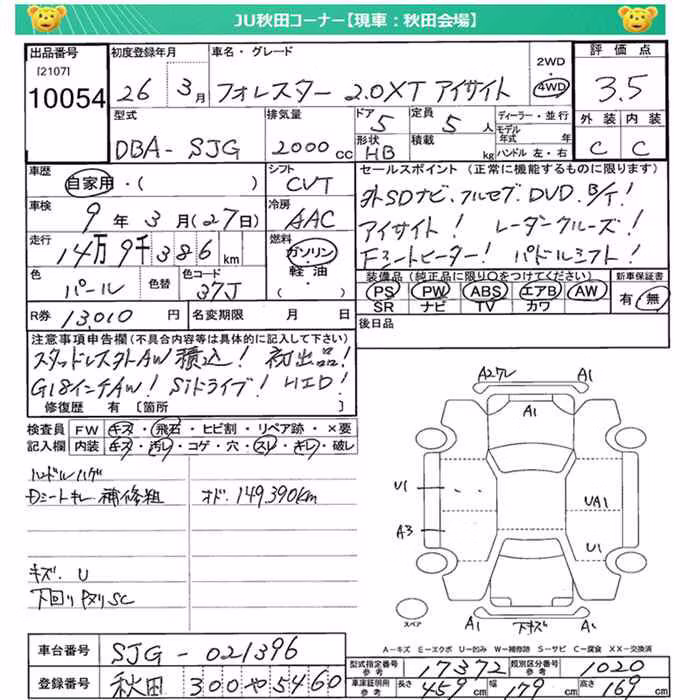 JU秋田コーナー【現車：秋田会場】
出品番号 初度登録年月 車名・グレード 2WD 評価点
[2107]
10054 26 3月 フォレスター 2.0XT アイサイト 4WD 3.5
型式 排気量 ドア 定員 ディーラー・並行 外装 内装
DBA-SJG 2000cc 5 5人 モデル年式 年 C C
形状 HB 積載 kg ハンドル 左・右
車歴 自家用・( ) シフト CVT
セールスポイント (正常に機能するものに限ります)
外SDナビ、フルセグ DVD. B/T!
車検 9年3月(27日) 冷房 AAC
アイサイト! レーダークルーズ!
走行 14万9千386km 燃料 ガソリン・軽油・( )
Fシートヒーター! パドルシフト!
色 パール 色替 色コード 37J
装備品(純正品に限り○をつけてください) 新車保証書
PS PW ABS エアB AW 有・無
SR ナビ TV カワ
R券 13,010円 名変期限 月 日
後日品
注意事項申告欄(不具合内容等は具体的に記入して下さい)
スタッドレスタイヤAW積込! 初出品!
G18インチAW! Siドライブ! LIED!
修復歴 有 [箇所 ]
検査員 FW キズ・飛石・ヒビ割・リペア跡・×要
記入欄 内装 キズ・汚レ・コゲ・穴・スレ・キレ・破レ
ハンドルハゲ
Dシートキレ補修粗 オド. 149,390km
キズ. U
下回りPヌリSC
A2ワレ A1
A1
U1 UA1
A3 U1
スペア A1 下キズ A1
A-キズ E-エクボ U-凹み W-補修跡 S-サビ C-腐食 XX-交換済
車台番号 SJG-021396
型式指定番号 参考 17372 類別区分番号 参考 1020
登録番号 秋田 300 や 5460
車庫証明用 参考 長さ 459cm 幅 179cm 高さ 169cm